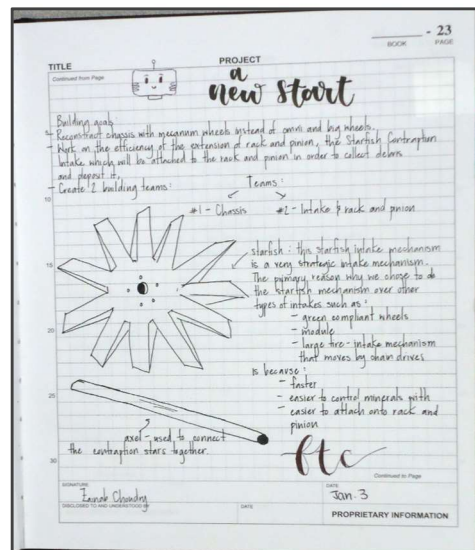 - 23
BOOK PAGE
TITLE
PROJECT
Continued from Page
a
new start
Building goals
- Reconstruct chassis with mecanum wheels instead of omni and big wheels.
- Work on the efficiency of the extension of rack and pinion, the Starfish Contraption
Intake which will be attached to the rack and pinion in order to collect debris
and deposit it.
- Create 2 building teams:
Teams:
#1 - Chassis
#2 - Intake & rack and pinion
starfish: this starfish intake mechanism
is a very strategic intake mechanism.
The primary reason why we chose to do
the starfish mechanism over other
types of intakes such as:
- green compliant wheels
- module
- large tire - intake mechanism
that moves by chain drives
is because:
- faster
- easier to control minerals with
- easier to attach onto rack and
pinion
axel - used to connect
the contraption stars together.
ftc
5
10
15
20
25
30
Continued to Page
SIGNATURE
Zainab Choudry
DATE
Jan. 3
DISCLOSED TO AND UNDERSTOOD BY
DATE
PROPRIETARY INFORMATION